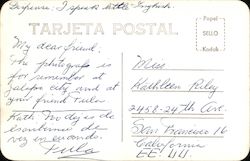 Dispense: I speak little English.
TARJETA POSTAL
Papel
SELLO
Kodak
My dear friend:
The photograph is
for reminder at
Jalapa city and at
your friend Tula
Kath. No dejes de
escribirme de
vez en cuando.
Tula
Miss
Kathleen Riley
2458-24th Ave.
San Francisco 16
California
EE. UU.